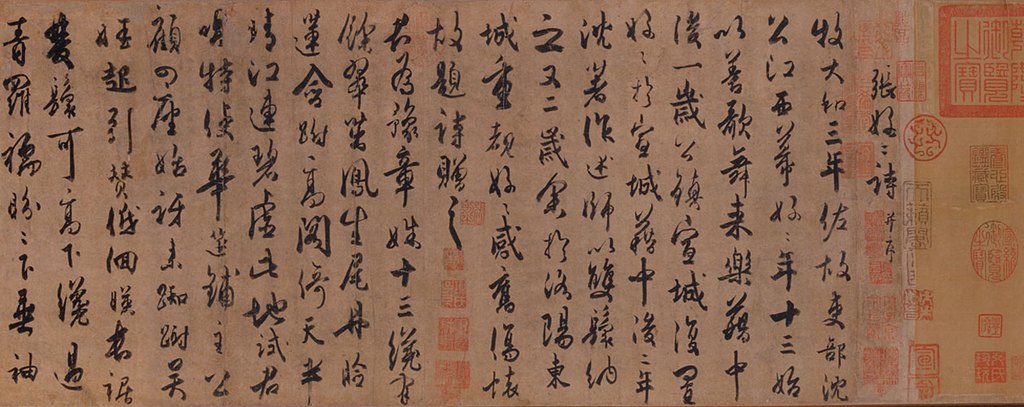 乾隆御覽之寶
張好〻詩 并序
牧大和三年佐故吏部沈
公江西幕好〻年十三始
以善歌舞來樂籍中
後一歲公鎮宣城復置
好〻於宣城籍中後二年
沈著作述師以雙鬟納
之又二歲余於洛陽東
城重覩好〻感舊傷懷
故題詩贈之
君為豫章姝十三纔有
餘翠茁鳳生尾丹臉
蓮含跗高閣倚天半
晴江連碧虛此地試君
唱特使華筵鋪主公
顧四座始訝來踟躕吳
娃起引贊低佪映長裾
雙鬟可高下纔過
青羅襦盼〻下垂袖